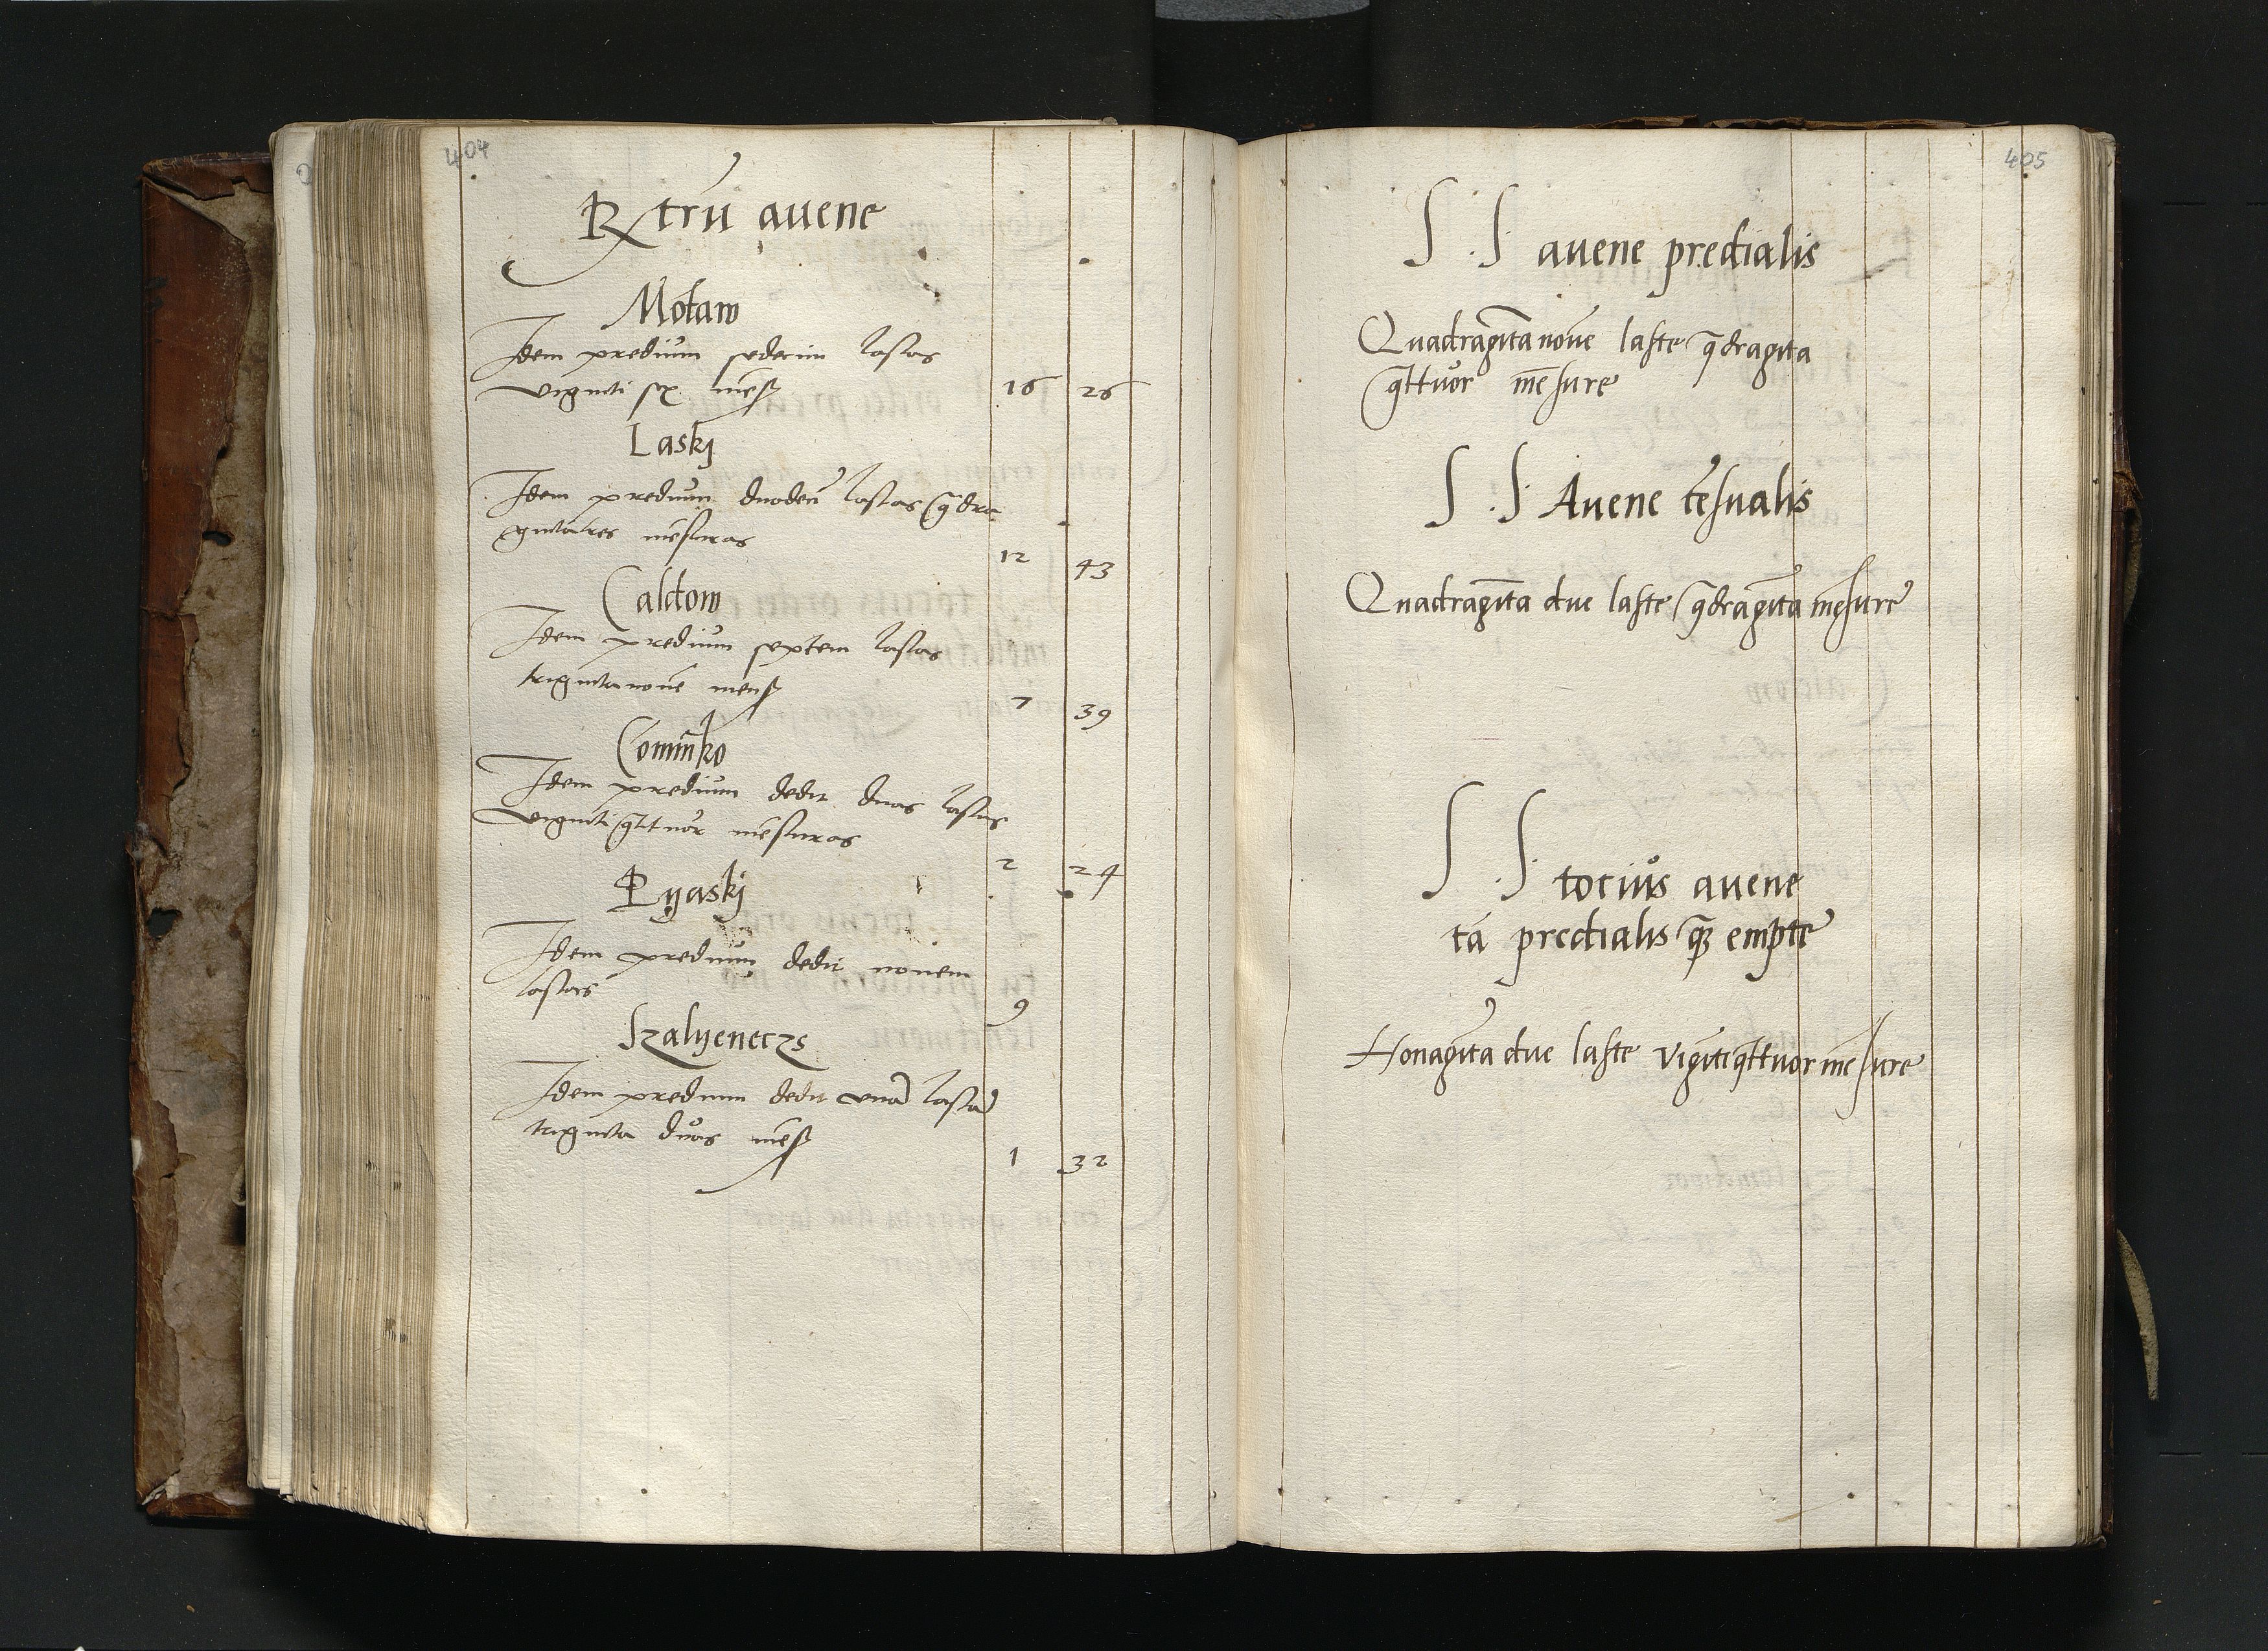 404
Rtru avene
Motaw
Idem predium sedecim lastas
viginti sex mens
16 26
Laskj
Idem predium duodeci lastas qdra-
gintatres mesuras
12 43
Caldow
Idem predium septem lastas
trigintanove mens
7 39
Comīnko
Idem predium dedit duas lastas
viginti qttuor mesuras
2 24
Pyaskj
Idem predium dedit novem
lastas
9
Szalyeneczs
Idem predium dedit una lasta
triginta duas mens
1 32
405
S. S. avene predialis
Quadragītanove laste qdragīta
qttuor mēsure
S. S. Avene cesualis
Quadragīta due laste qdragīta mēsure
S. S. tocius avene
tā predialis q empte
Nonagīta due laste vigītiqttuor mēsure